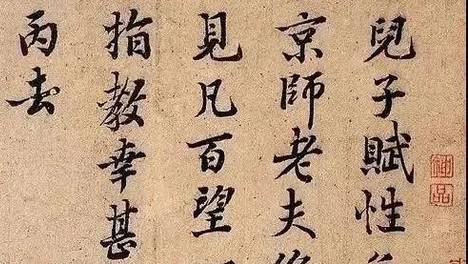 兒子賦性
京師老夫
見凡百望
指教幸甚
丙去
神品